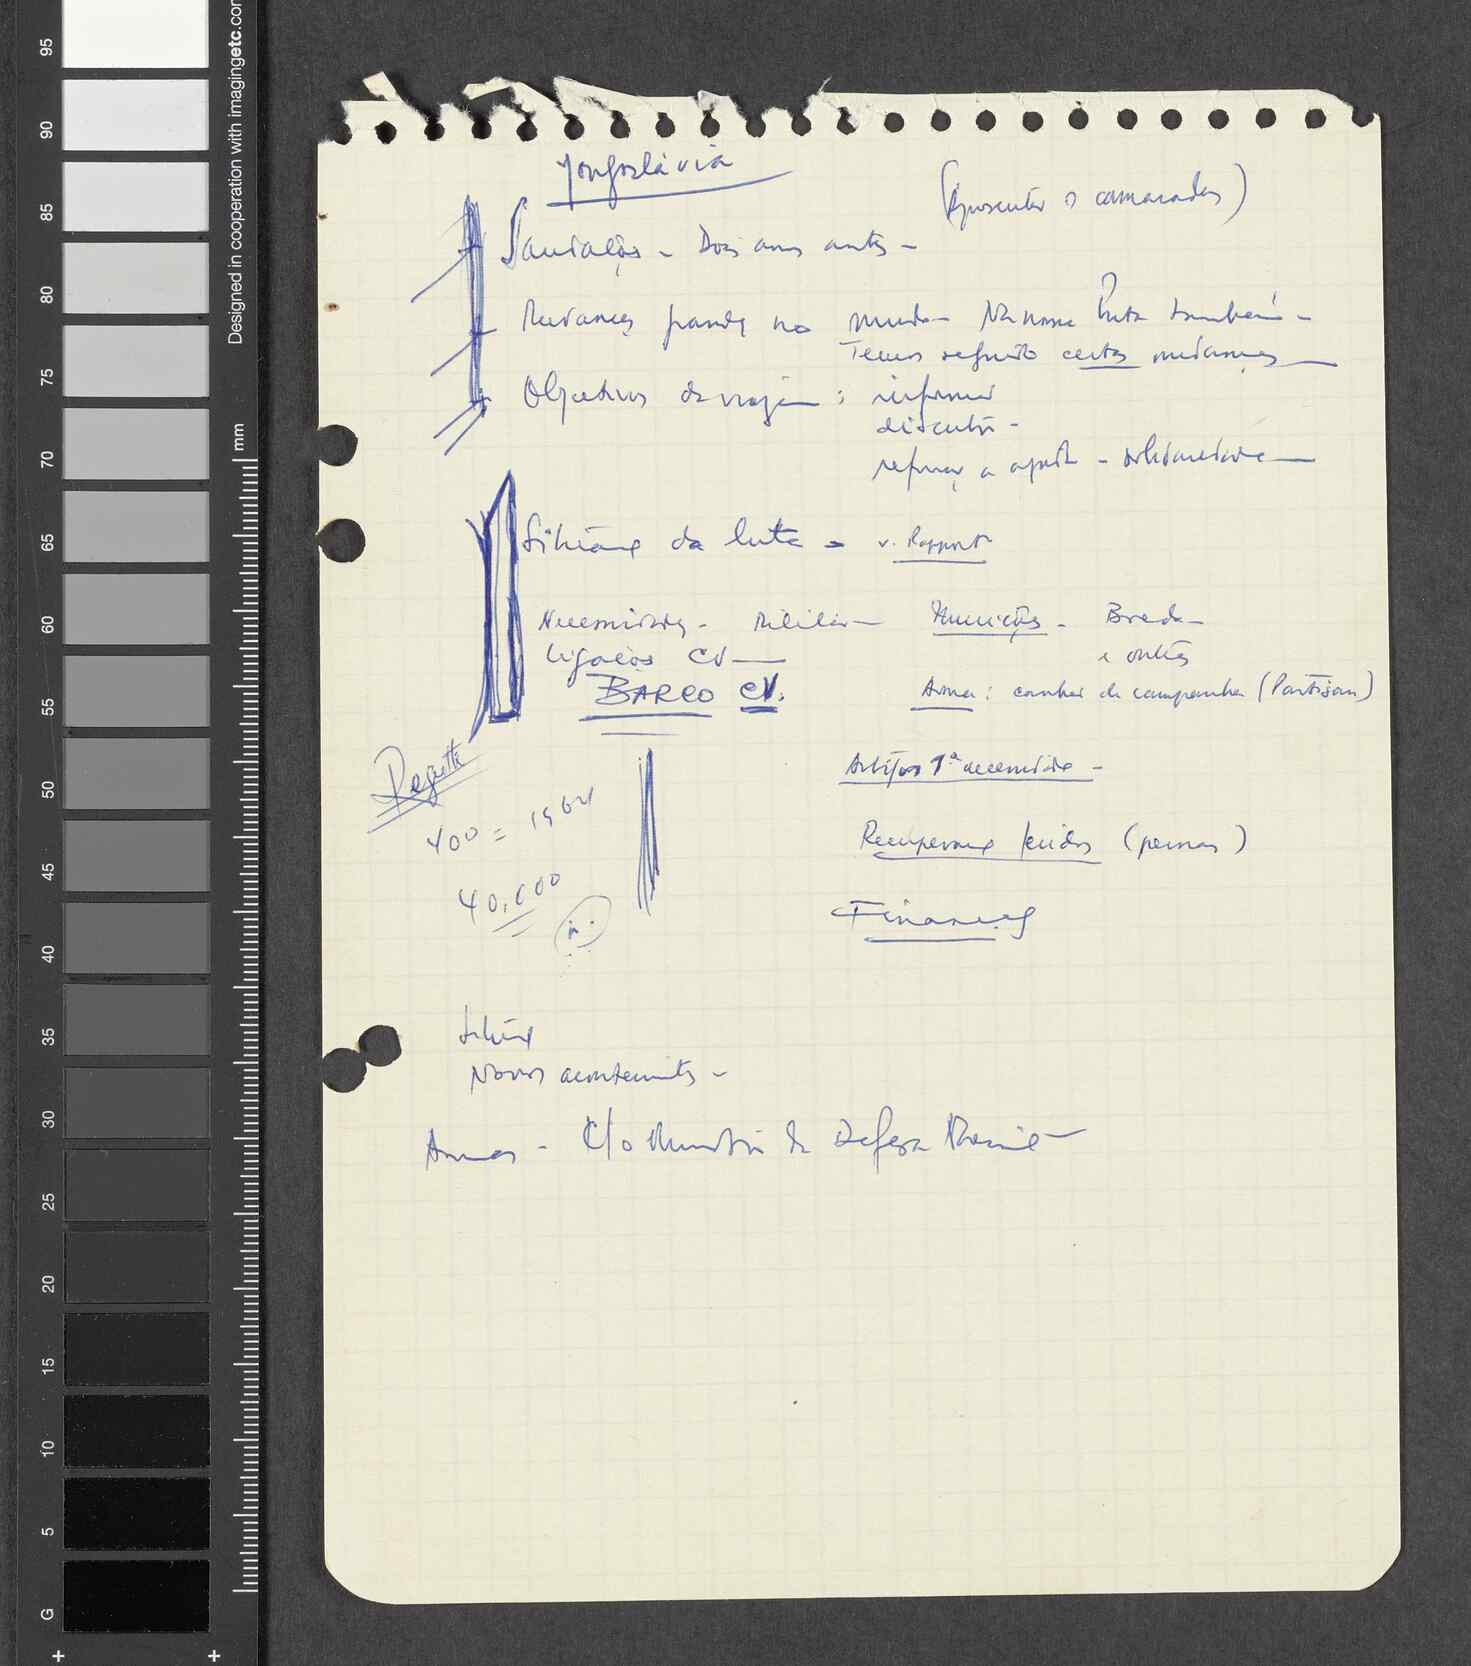 Jougoslávia
(Apresentar os camaradas)
Saudações - Dois anos antes -
Mudanças grandes no mundo - Na nossa luta também -
Temos seguido certas mudanças
Objectivos da viagem : informar
discutir -
reforçar a ajuda - solidariedade
Situação da luta - v. Rapport
Necessidades - Militar - Munições - Breda -
e outras
Ligações CV
BARCO CV.
Armas : canhão de campanha (Partisan)
1ª necessidade -
400 = 1964
Recuperação feridos (pernas)
40.000
Finanças
Situação
Novos acontecimentos -
Armas - C/o Ministro da Defesa
95
90
85
80
75
70
65
60
55
50
45
40
35
30
25
20
15
10
5
G
mm
Designed in cooperation with imagingetc.com